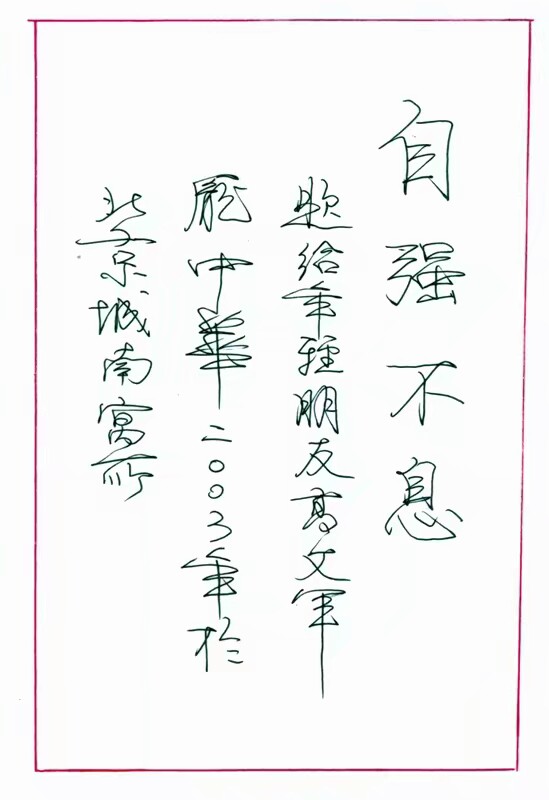 自强不息
题给年轻朋友高文军
龐中華二〇〇三年於
北京城南寓所